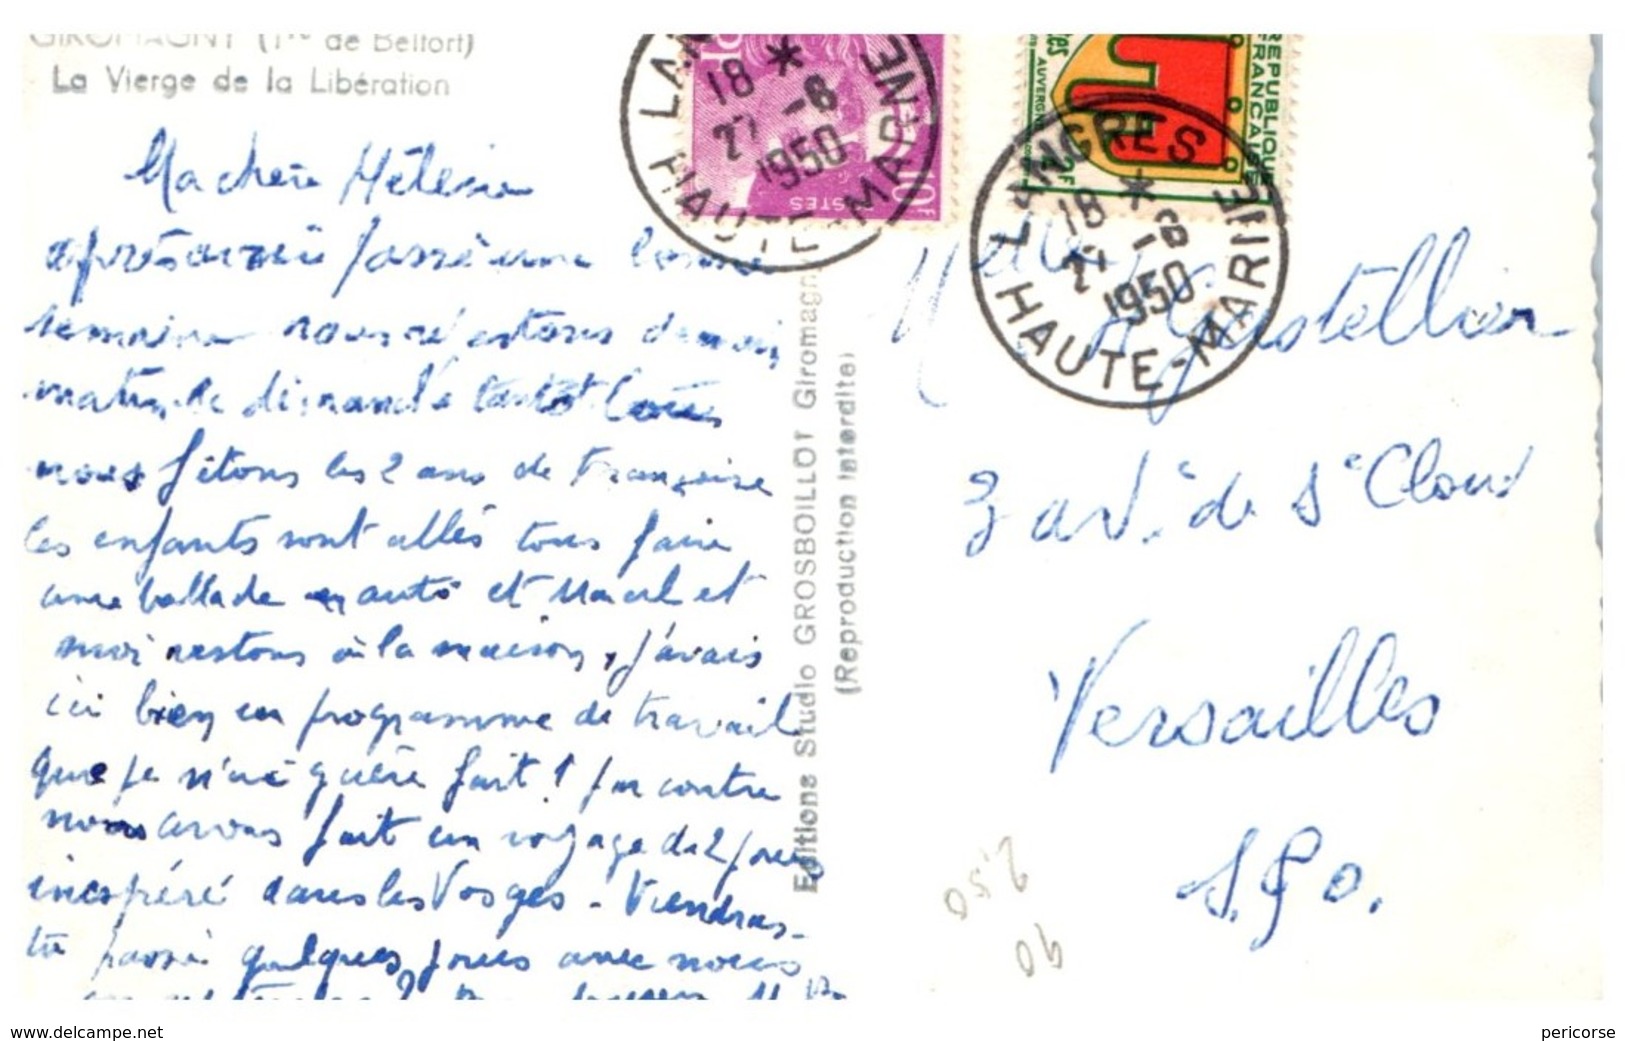 GIROMAGNY (Tre de Belfort)
La Vierge de la Libération
Ma chère Hélène
après avoir passé une bonne
semaine nous restons demain
matin, le dimanche tantôt
nous fêtons les 2 ans de Françoise
les enfants sont allés tous faire
une ballade en auto et Marcel et
moi restons à la maison, j'avais
ici bien un programme de travail
que je n'ai guère fait ! par contre
nous avons fait un voyage de 2 jours
inespéré dans les Vosges - Viendras-
tu passer quelques jours avec nous
Editions Studio GROSBOILLOT Giromagny
(Reproduction interdite)
LANGRES
18 *
27 -8
1950
HAUTE-MARNE
POSTES
10F
REPUBLIQUE
FRANÇAISE
AUVERGNE
2F
LANGRES
18 *
27 -8
1950
HAUTE-MARNE
Melle
3 av. de St Cloud
Versailles
S. & O.
250
90
www.delcampe.net
pericorse